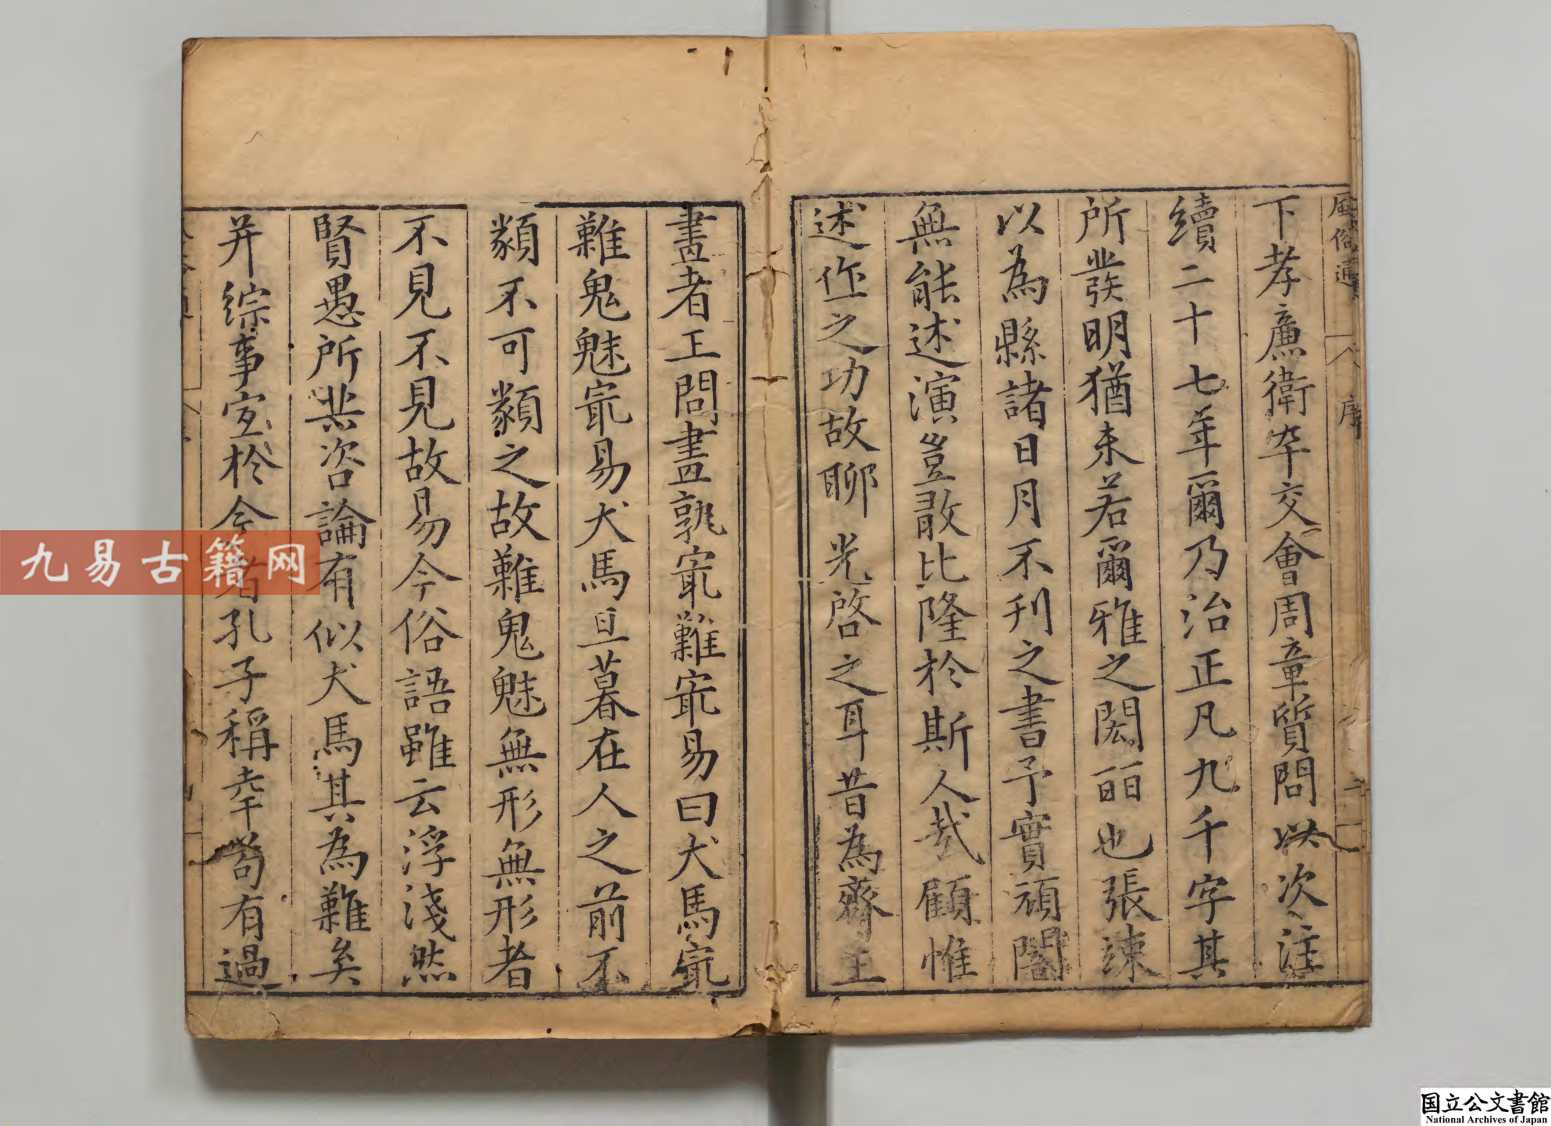 風俗通 序
下孝廉衛卒交會周章質問以次注
續二十七年爾乃治正凡九千字其
所發明猶未若爾雅之閎麗也張竦
以為縣諸日月不刊之書予實頑闇
無能述演豈敢比隆於斯人哉顧惟
述作之功故聊光啓之耳昔為齊王
畫者王問畫孰㝡難㝡易曰犬馬㝡
難鬼魅㝡易犬馬旦暮在人之前不
類不可類之故難鬼魅無形無形者
不見不見故易今俗語雖云浮淺然
賢愚所共咨論有似犬馬其為難矣
并綜事宜於今者孔子稱幸苟有過
九易古籍网
国立公文書館
National Archives of Japan